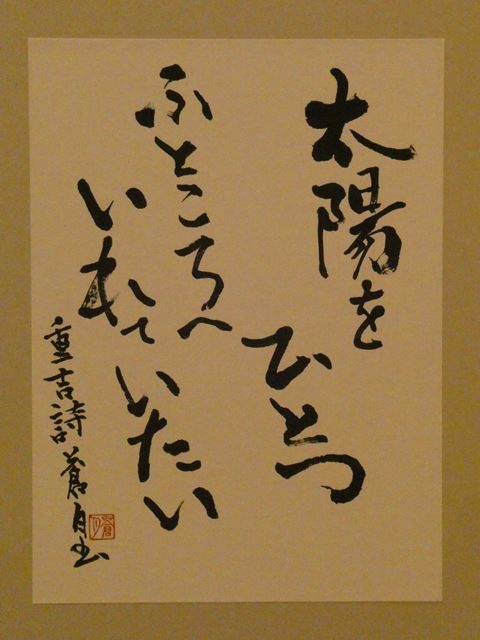 太陽を
ひとつ
ふところへ
いれていたい
重吉詩 蒼月書
蒼月